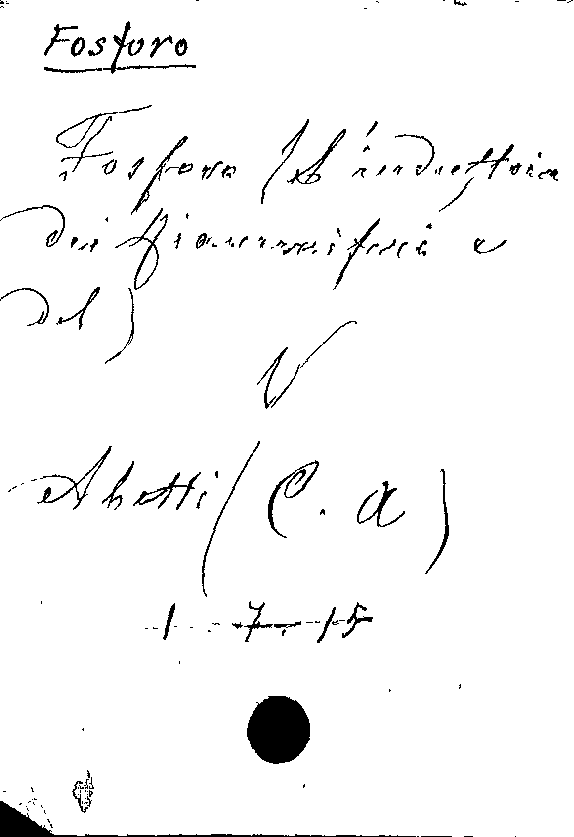 Fosforo
Fosforo (L'industria
dei fiammiferi e
del)
V
Abetti (C. A)
1-7-15